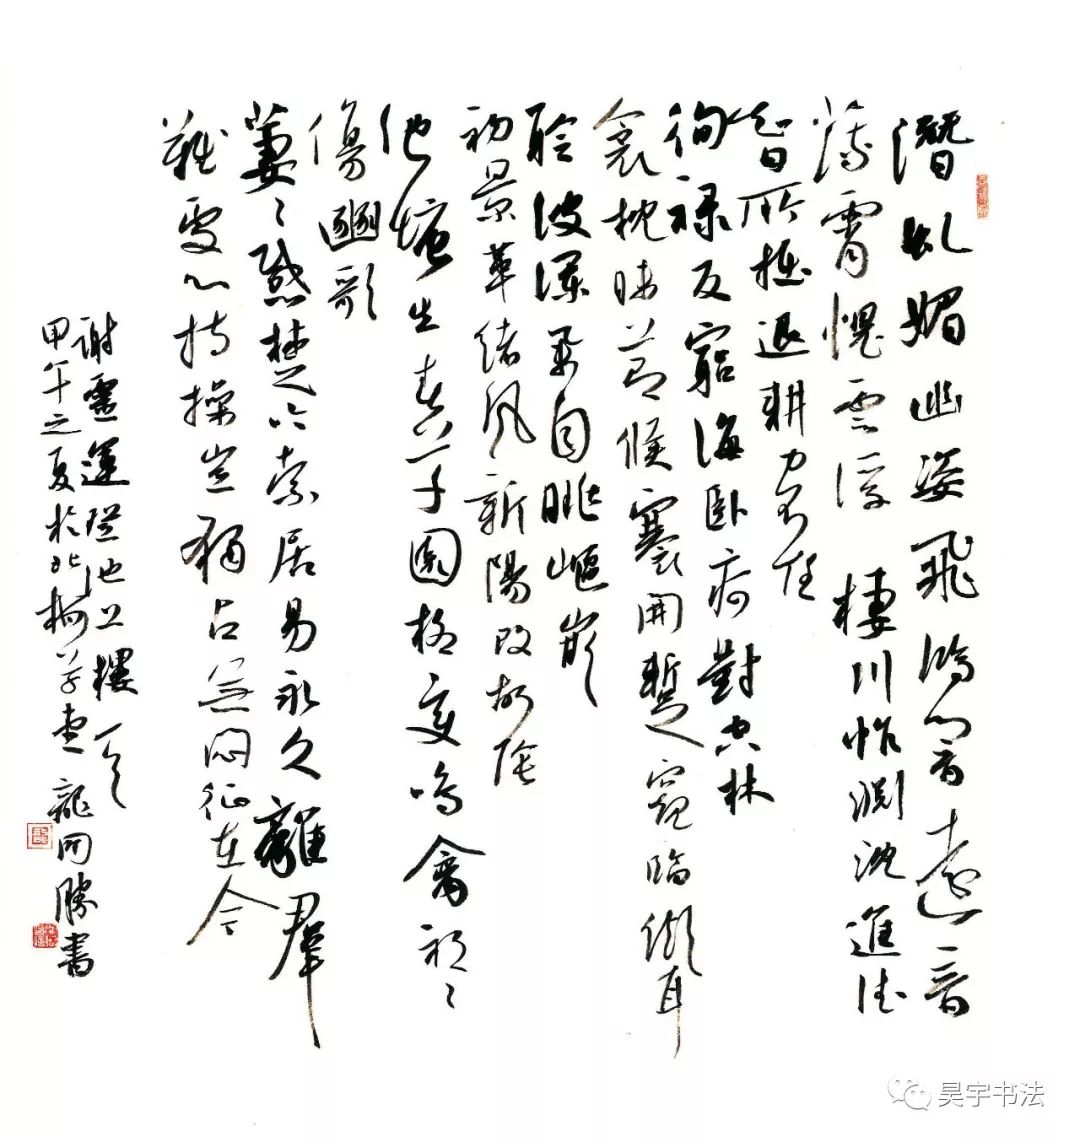 潛虬媚幽姿飛鴻響遠音
薄霄愧雲浮棲川怍淵沈進德
智所拙退耕力不任
徇祿反窮海臥痾對空林
衾枕昧節候褰開暫窺臨傾耳
聆波瀾舉目眺嶇嶔
初景革緒風新陽改故陰
池塘生春草園柳變鳴禽祁〻
傷豳歌
萋〻感楚吟索居易永久離羣
難處心持操豈獨古無悶征在今
謝靈運登池上樓一首
甲午之夏於北柳草堂龍開勝書
昊宇书法